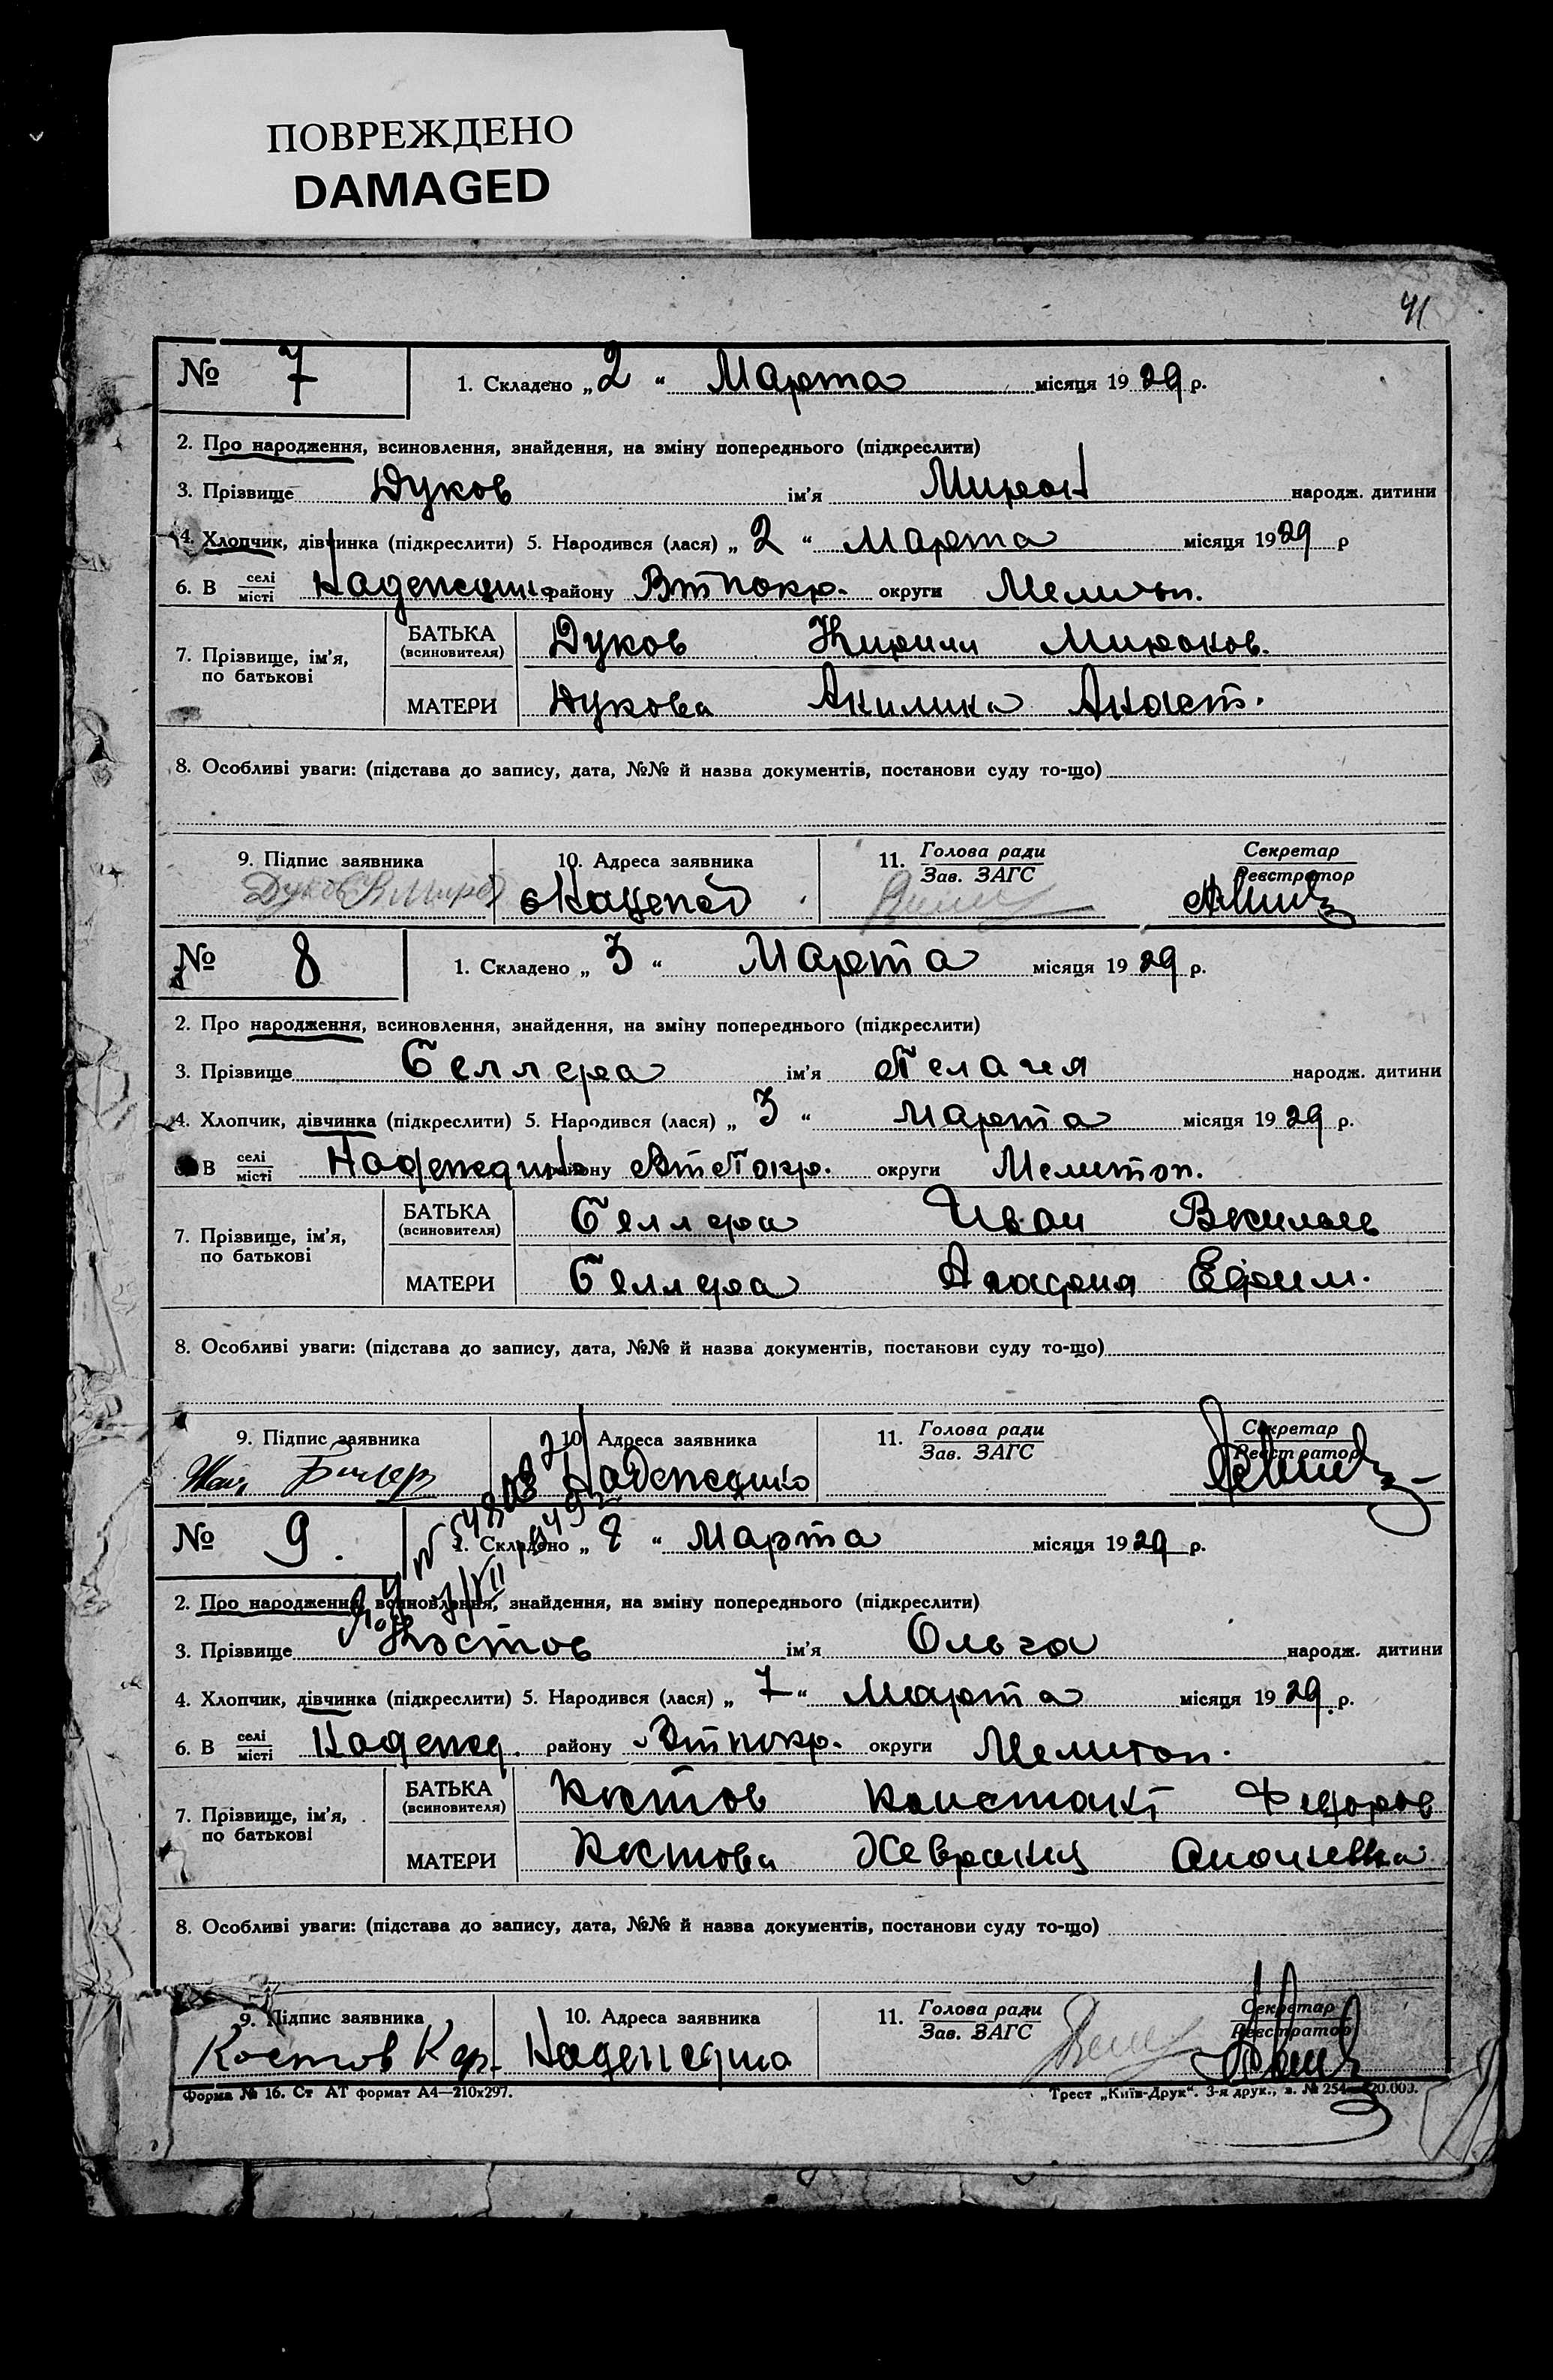 ПОВРЕЖДЕНО
DAMAGED
41
№ 7
1. Складено „ 2 “ Марта місяця 1929 р.
2. Про народження, всиновлення, знайдення, на зміну попереднього (підкреслити)
3. Прізвище Дуков ім’я Мирон народж. дитини
4. Хлопчик, дівчинка (підкреслити) 5. Народився (лася) „ 2 “ Марта місяця 1929 р
6. В селі/місті району Втпокр. округи Мелитоп.
7. Прізвище, ім’я, по батькові
БАТЬКА (всиновителя) Дуков Кирилл Миронов.
МАТЕРИ Дукова Акилина Анаст.
8. Особливі уваги: (підстава до запису, дата, №№ й назва документів, постанови суду то-що)
9. Підпис заявника 10. Адреса заявника 11. Голова ради/Зав. ЗАГС Секретар/Реєстратор
Дуков К Миро
№ 8
1. Складено „ 3 “ Марта місяця 1929 р.
2. Про народження, всиновлення, знайдення, на зміну попереднього (підкреслити)
3. Прізвище Беллера ім’я Пелагия народж. дитини
4. Хлопчик, дівчинка (підкреслити) 5. Народився (лася) „ 3 “ Марта місяця 1929 р.
В селі/місті району ВтПокр. округи Мелитоп.
7. Прізвище, ім’я, по батькові
БАТЬКА (всиновителя) Беллера Иван
МАТЕРИ Беллера Агафия Ефим.
8. Особливі уваги: (підстава до запису, дата, №№ й назва документів, постанови суду то-що)
9. Підпис заявника 10. Адреса заявника 11. Голова ради/Зав. ЗАГС Секретар/Реєстратор
№ 9.
1. Складено „ 8 “ Марта місяця 1929 р.
2. Про народження, всиновлення, знайдення, на зміну попереднього (підкреслити)
3. Прізвище Костов ім’я Ольга народж. дитини
4. Хлопчик, дівчинка (підкреслити) 5. Народився (лася) „ 7 “ Марта місяця 1929 р.
6. В селі/місті Надежд. району Втпокр. округи Мелитоп.
7. Прізвище, ім’я, по батькові
БАТЬКА (всиновителя) Костов Констант Федоров
МАТЕРИ Костова
8. Особливі уваги: (підстава до запису, дата, №№ й назва документів, постанови суду то-що)
9. Підпис заявника 10. Адреса заявника 11. Голова ради/Зав. ЗАГС Секретар/Реєстратор
Костов Кар.
Форма № 16. Ст АТ формат А4—210х297. Трест „Київ-Друк“. 3-я друк., з. № 254